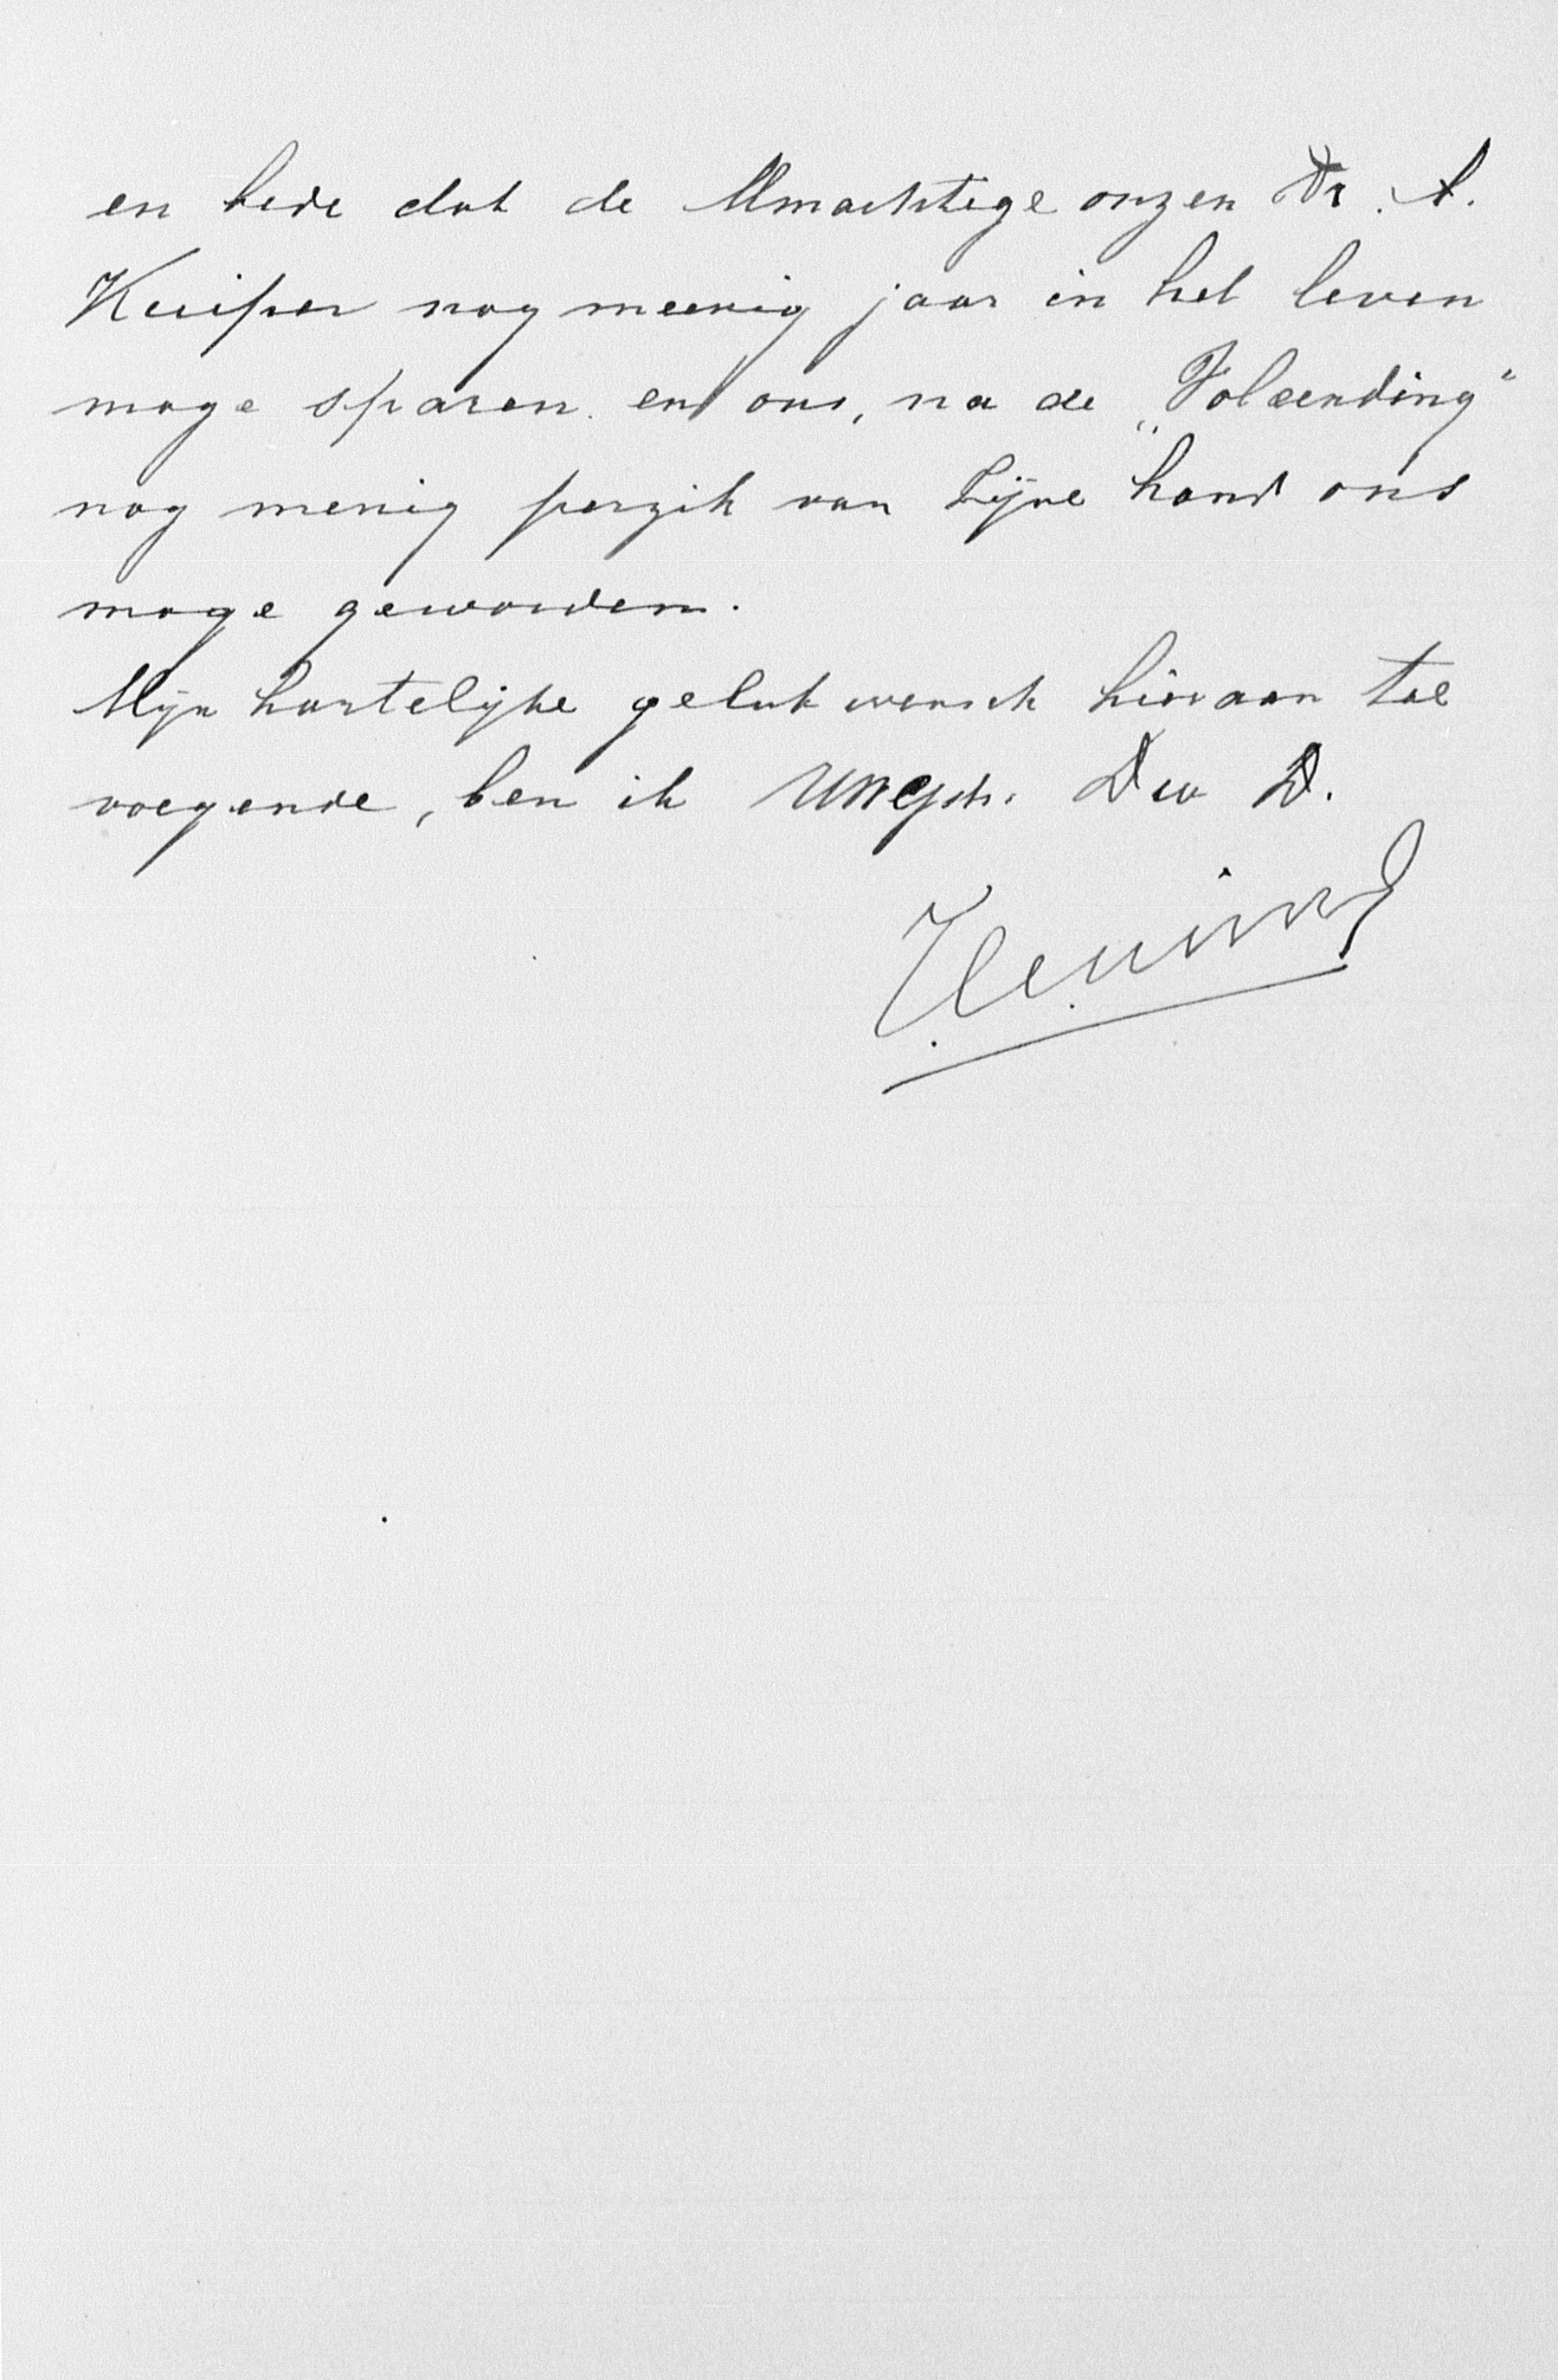 en bede dat de Almachtige onzen Dr. A.
Kuiper nog meenig jaar in het leven
moge sparen en ons, na de „Voleending"
nog menig perzik van Zijne hand ons
moge geworden.
Mijn hartelijke gelukwensch hieraan toe
voegende, ben ik UwEgeb. Dw D.